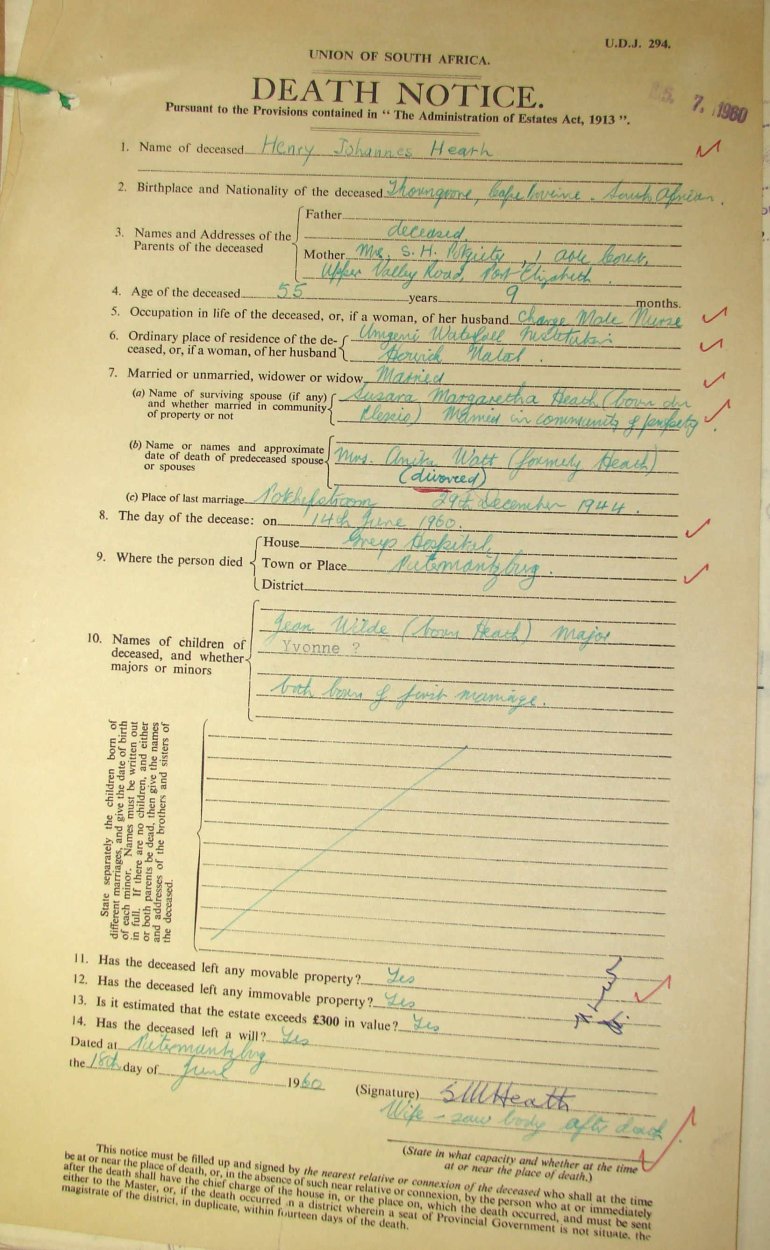 U.D.J. 294.
UNION OF SOUTH AFRICA.
DEATH NOTICE.
7. 1960
Pursuant to the Provisions contained in “ The Administration of Estates Act, 1913 ”.
1. Name of deceased Henry Johannes Heath
2. Birthplace and Nationality of the deceased Cape Province. South African
3. Names and Addresses of the Parents of the deceased
Father
deceased
Mother Mrs. S. H. 1 Court,
Upper Valley Road, Port Elizabeth.
4. Age of the deceased 55 years 9 months.
5. Occupation in life of the deceased, or, if a woman, of her husband Charge Male Nurse
6. Ordinary place of residence of the de-
ceased, or, if a woman, of her husband
Umgeni Waterfall Institution
Howick Natal.
7. Married or unmarried, widower or widow Married
(a) Name of surviving spouse (if any)
and whether married in community
of property or not
Susara Margaretha Heath (born du
Plessis) Married in community of property.
(b) Name or names and approximate
date of death of predeceased spouse
or spouses
Mrs. Watt (formely Heath)
(divorced)
(c) Place of last marriage Potchefstroom 29th December 1944.
8. The day of the decease: on 14th June 1960.
9. Where the person died
House Greys Hospital
Town or Place Pietermaritzburg.
District
10. Names of children of
deceased, and whether
majors or minors
Jean Wilde (born Heath) Major
Yvonne ?
both born of first marriage.
State separately the children born of
different marriages, and give the date of birth
of each minor. Names must be written out
in full. If there are no children, and either
or both parents be dead, then give the names
and addresses of the brothers and sisters of
the deceased.
11. Has the deceased left any movable property? Yes
12. Has the deceased left any immovable property? Yes
13. Is it estimated that the estate exceeds £300 in value? Yes
14. Has the deceased left a will? Yes
Dated at Pietermaritzburg
the 18th day of June 1960
(Signature) SMHeath
Wife - saw body after death
(State in what capacity and whether at the time
at or near the place of death.)
This notice must be filled up and signed by the nearest relative or connexion of the deceased who shall at the time
be at or near the place of death, or, in the absence of such near relative or connexion, by the person who at or immediately
after the death shall have the chief charge of the house in, or the place on, which the death occurred, and must be sent
either to the Master, or, if the death occurred in a district wherein a seat of Provincial Government is not situate, the
magistrate of the district, in duplicate, within fourteen days of the death.